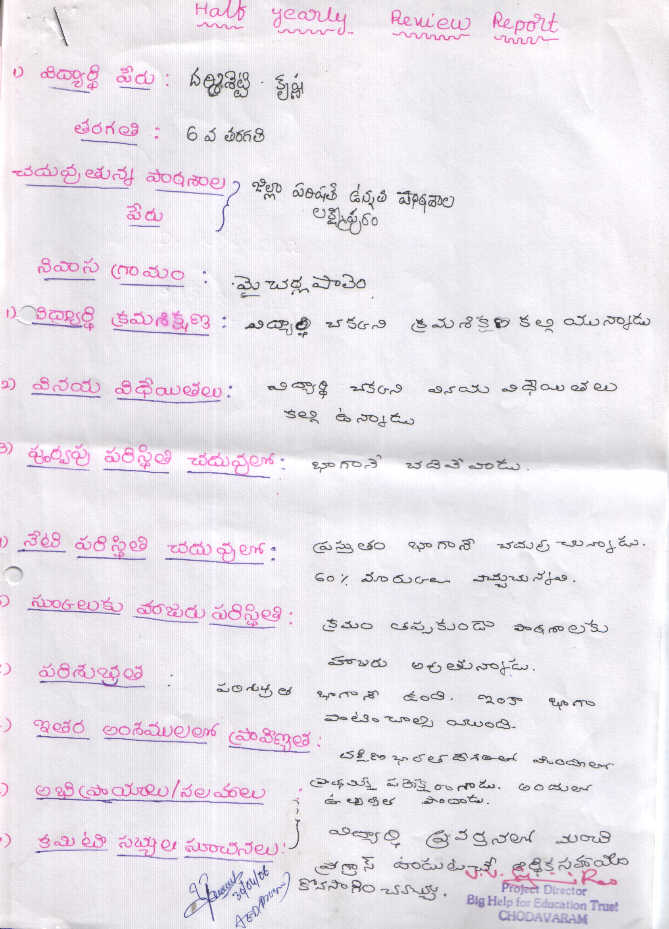 Half yearly Review Report
1) విద్యార్థి పేరు : దర్మిశెట్టి . కృష్ణ
తరగతి : 6 వ తరగతి
చదువుతున్న పాఠశాల పేరు } జిల్లా పరిషత్ ఉన్నత పాఠశాల
లక్ష్మీపురం
నివాస గ్రామం : మైచర్లపాలెం
1) విద్యార్థి క్రమశిక్షణ : విద్యార్థి చక్కని క్రమశిక్షణ కల్గి యున్నాడు
2) వినయ విధేయితలు : విద్యార్థి చక్కని వినయ విధేయితలు
కల్గి ఉన్నాడు
3) పూర్వపు పరిస్థితి చదువులో : బాగానే చదివేవాడు.
) నేటి పరిస్థితి చదువులో : ప్రస్తుతం బాగానే చదువుచున్నాడు.
60% మార్కులు వచ్చుచున్నవి.
) స్కూలుకు హాజరు పరిస్థితి : క్రమం తప్పకుండా పాఠశాలకు
హాజరు అవుతున్నాడు.
) పరిశుభ్రత : పరిశుభ్రత బాగానే ఉంది. ఇంకా బాగా
పాటించాల్సి యుంది.
) ఇతర అంశములలో ప్రావీణ్యత : దక్షిణ భారత హిందీలో
ప్రాథమిక్ పరీక్ష రాశాడు. అందులో
ఉత్తీర్ణత పొందాడు.
) అభిప్రాయాలు/సలహాలు :
) కమిటీ సభ్యుల సూచనలు : } విద్యార్థి ప్రవర్తనలో మంచి
ఆర్థిక సహాయం
కొనసాగించవచ్చు.
Project Director
Big Help for Education Trust
CHODAVARAM